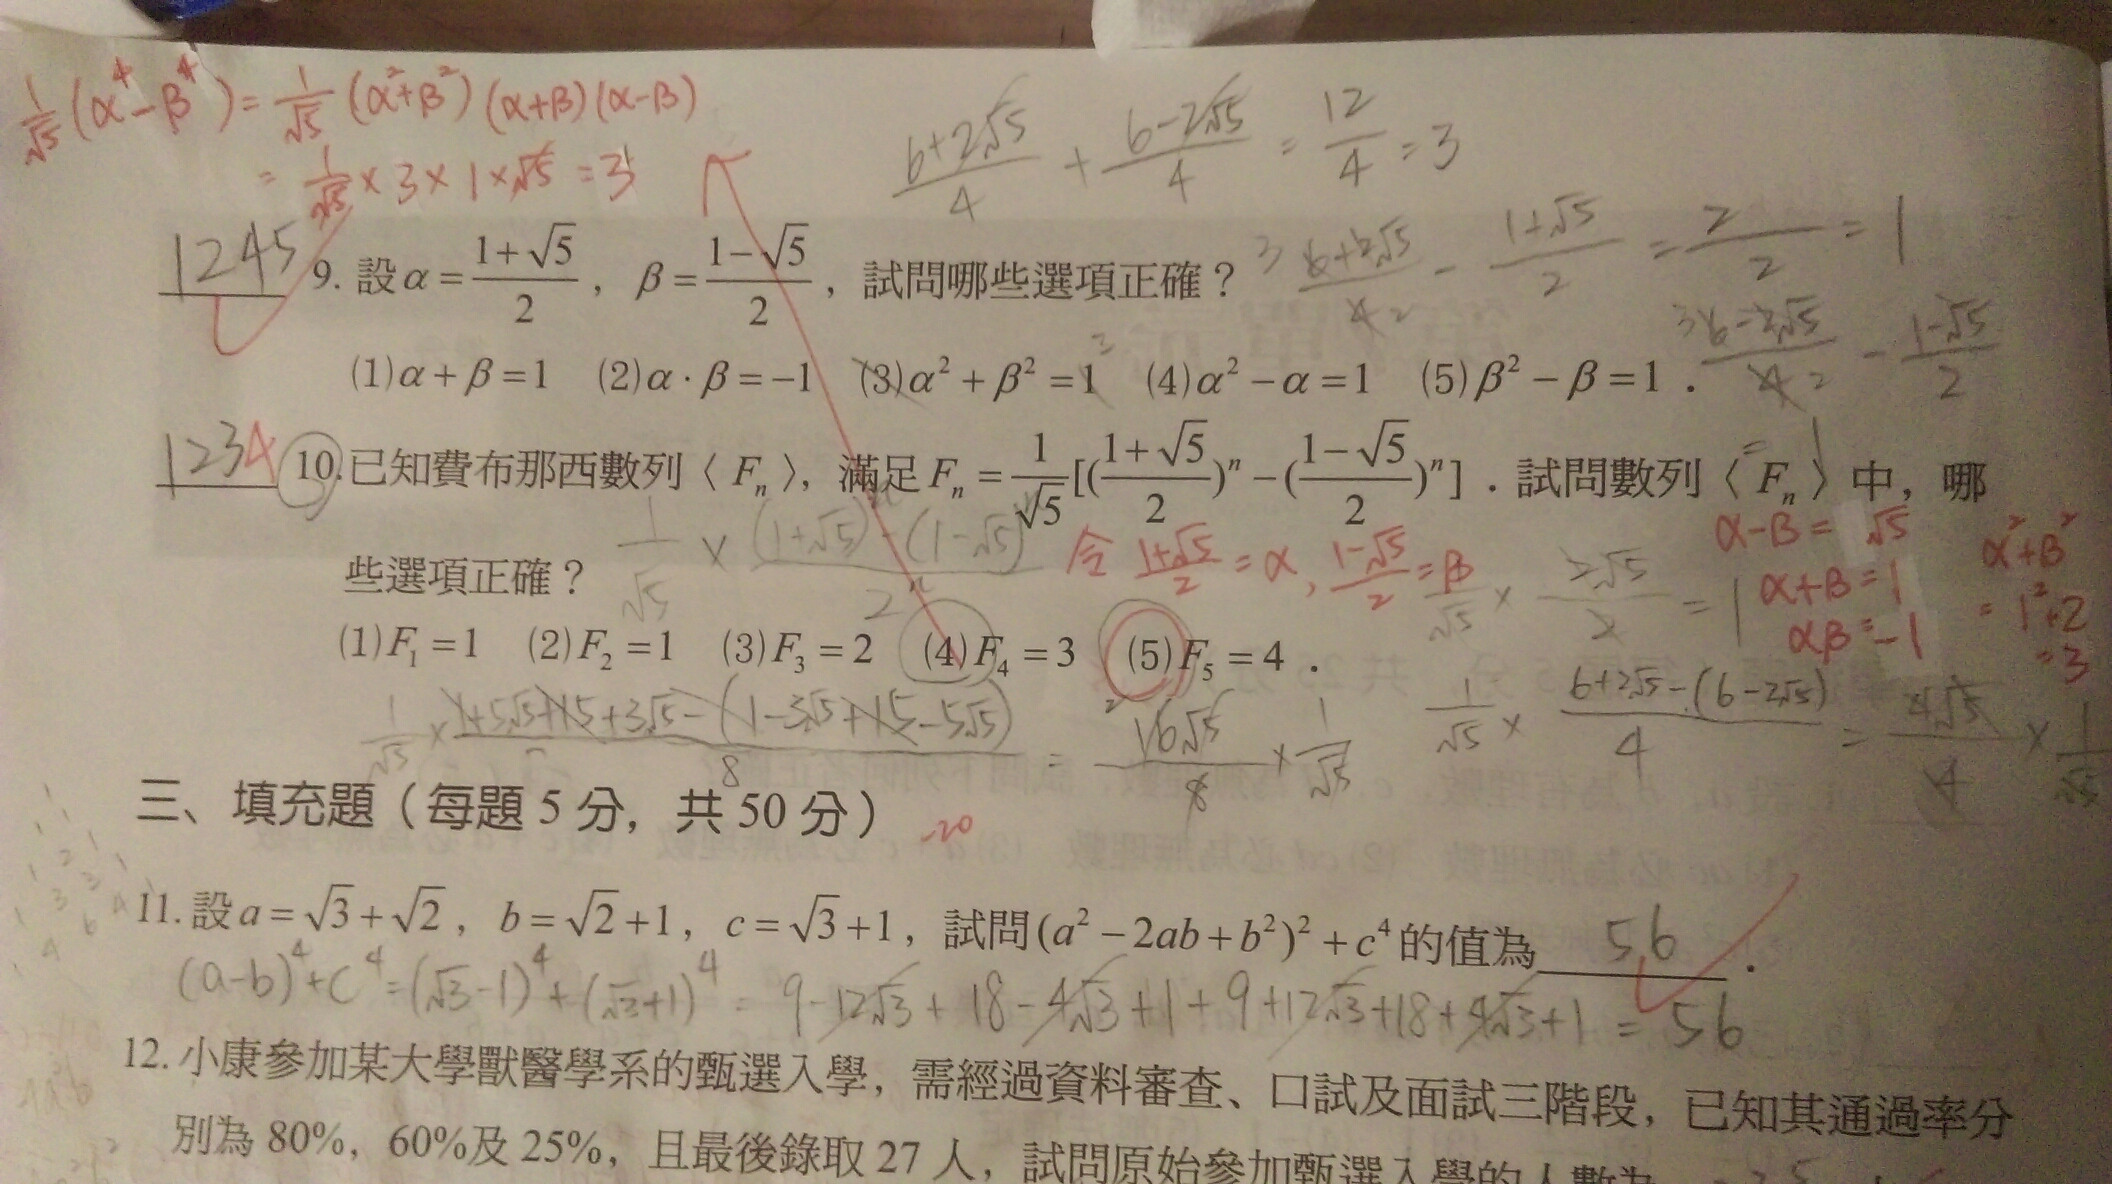 1/√5 (α⁴-β⁴) = 1/√5 (α²+β²)(α+β)(α-β)
= 1/√5 × 3 × 1 × √5 = 3
(6+2√5)/4 + (6-2√5)/4 = 12/4 = 3
1245
9. 設 α = (1+√5)/2 , β = (1-√5)/2 , 試問哪些選項正確?
3 (6+2√5)/4 2 - (1+√5)/2 = 2/2 = 1
(1) α+β=1 (2) α·β=-1 (3) α²+β²=1 3 (4) α²-α=1 (5) β²-β=1 .
3 (6-2√5)/4 2 - (1-√5)/2 = 1
1234
10. 已知費布那西數列〈Fₙ〉, 滿足 Fₙ = 1/√5 [((1+√5)/2)ⁿ - ((1-√5)/2)ⁿ] . 試問數列〈Fₙ〉中, 哪
些選項正確?
1/√5 × ((1+√5)ⁿ-(1-√5)ⁿ)/2ⁿ
令 (1+√5)/2 = α, (1-√5)/2 = β
1/√5 × 2√5/2 = 1
α-β = √5
α+β = 1
αβ = -1
α²+β²
= 1²+2
= 3
(1) F₁=1 (2) F₂=1 (3) F₃=2 (4) F₄=3 (5) F₅=4 .
1/√5 × (1+5√5+15+3√5-(1-3√5+15-5√5))/8 = 16√5/8 × 1/√5
1/√5 × (6+2√5-(6-2√5))/4 = 4√5/4 × 1/√5
三、填充題（每題 5 分, 共 50 分） -20
11. 設 a=√3+√2 , b=√2+1 , c=√3+1 , 試問 (a²-2ab+b²)²+c⁴ 的值為 56 .
(a-b)⁴+c⁴ = (√3-1)⁴+(√3+1)⁴ = 9-12√3+18-4√3+1+9+12√3+18+4√3+1 = 56
12. 小康參加某大學獸醫學系的甄選入學, 需經過資料審查、口試及面試三階段, 已知其通過率分
別為 80%, 60%及 25%, 且最後錄取 27 人, 試問原始參加甄選入學的人數為